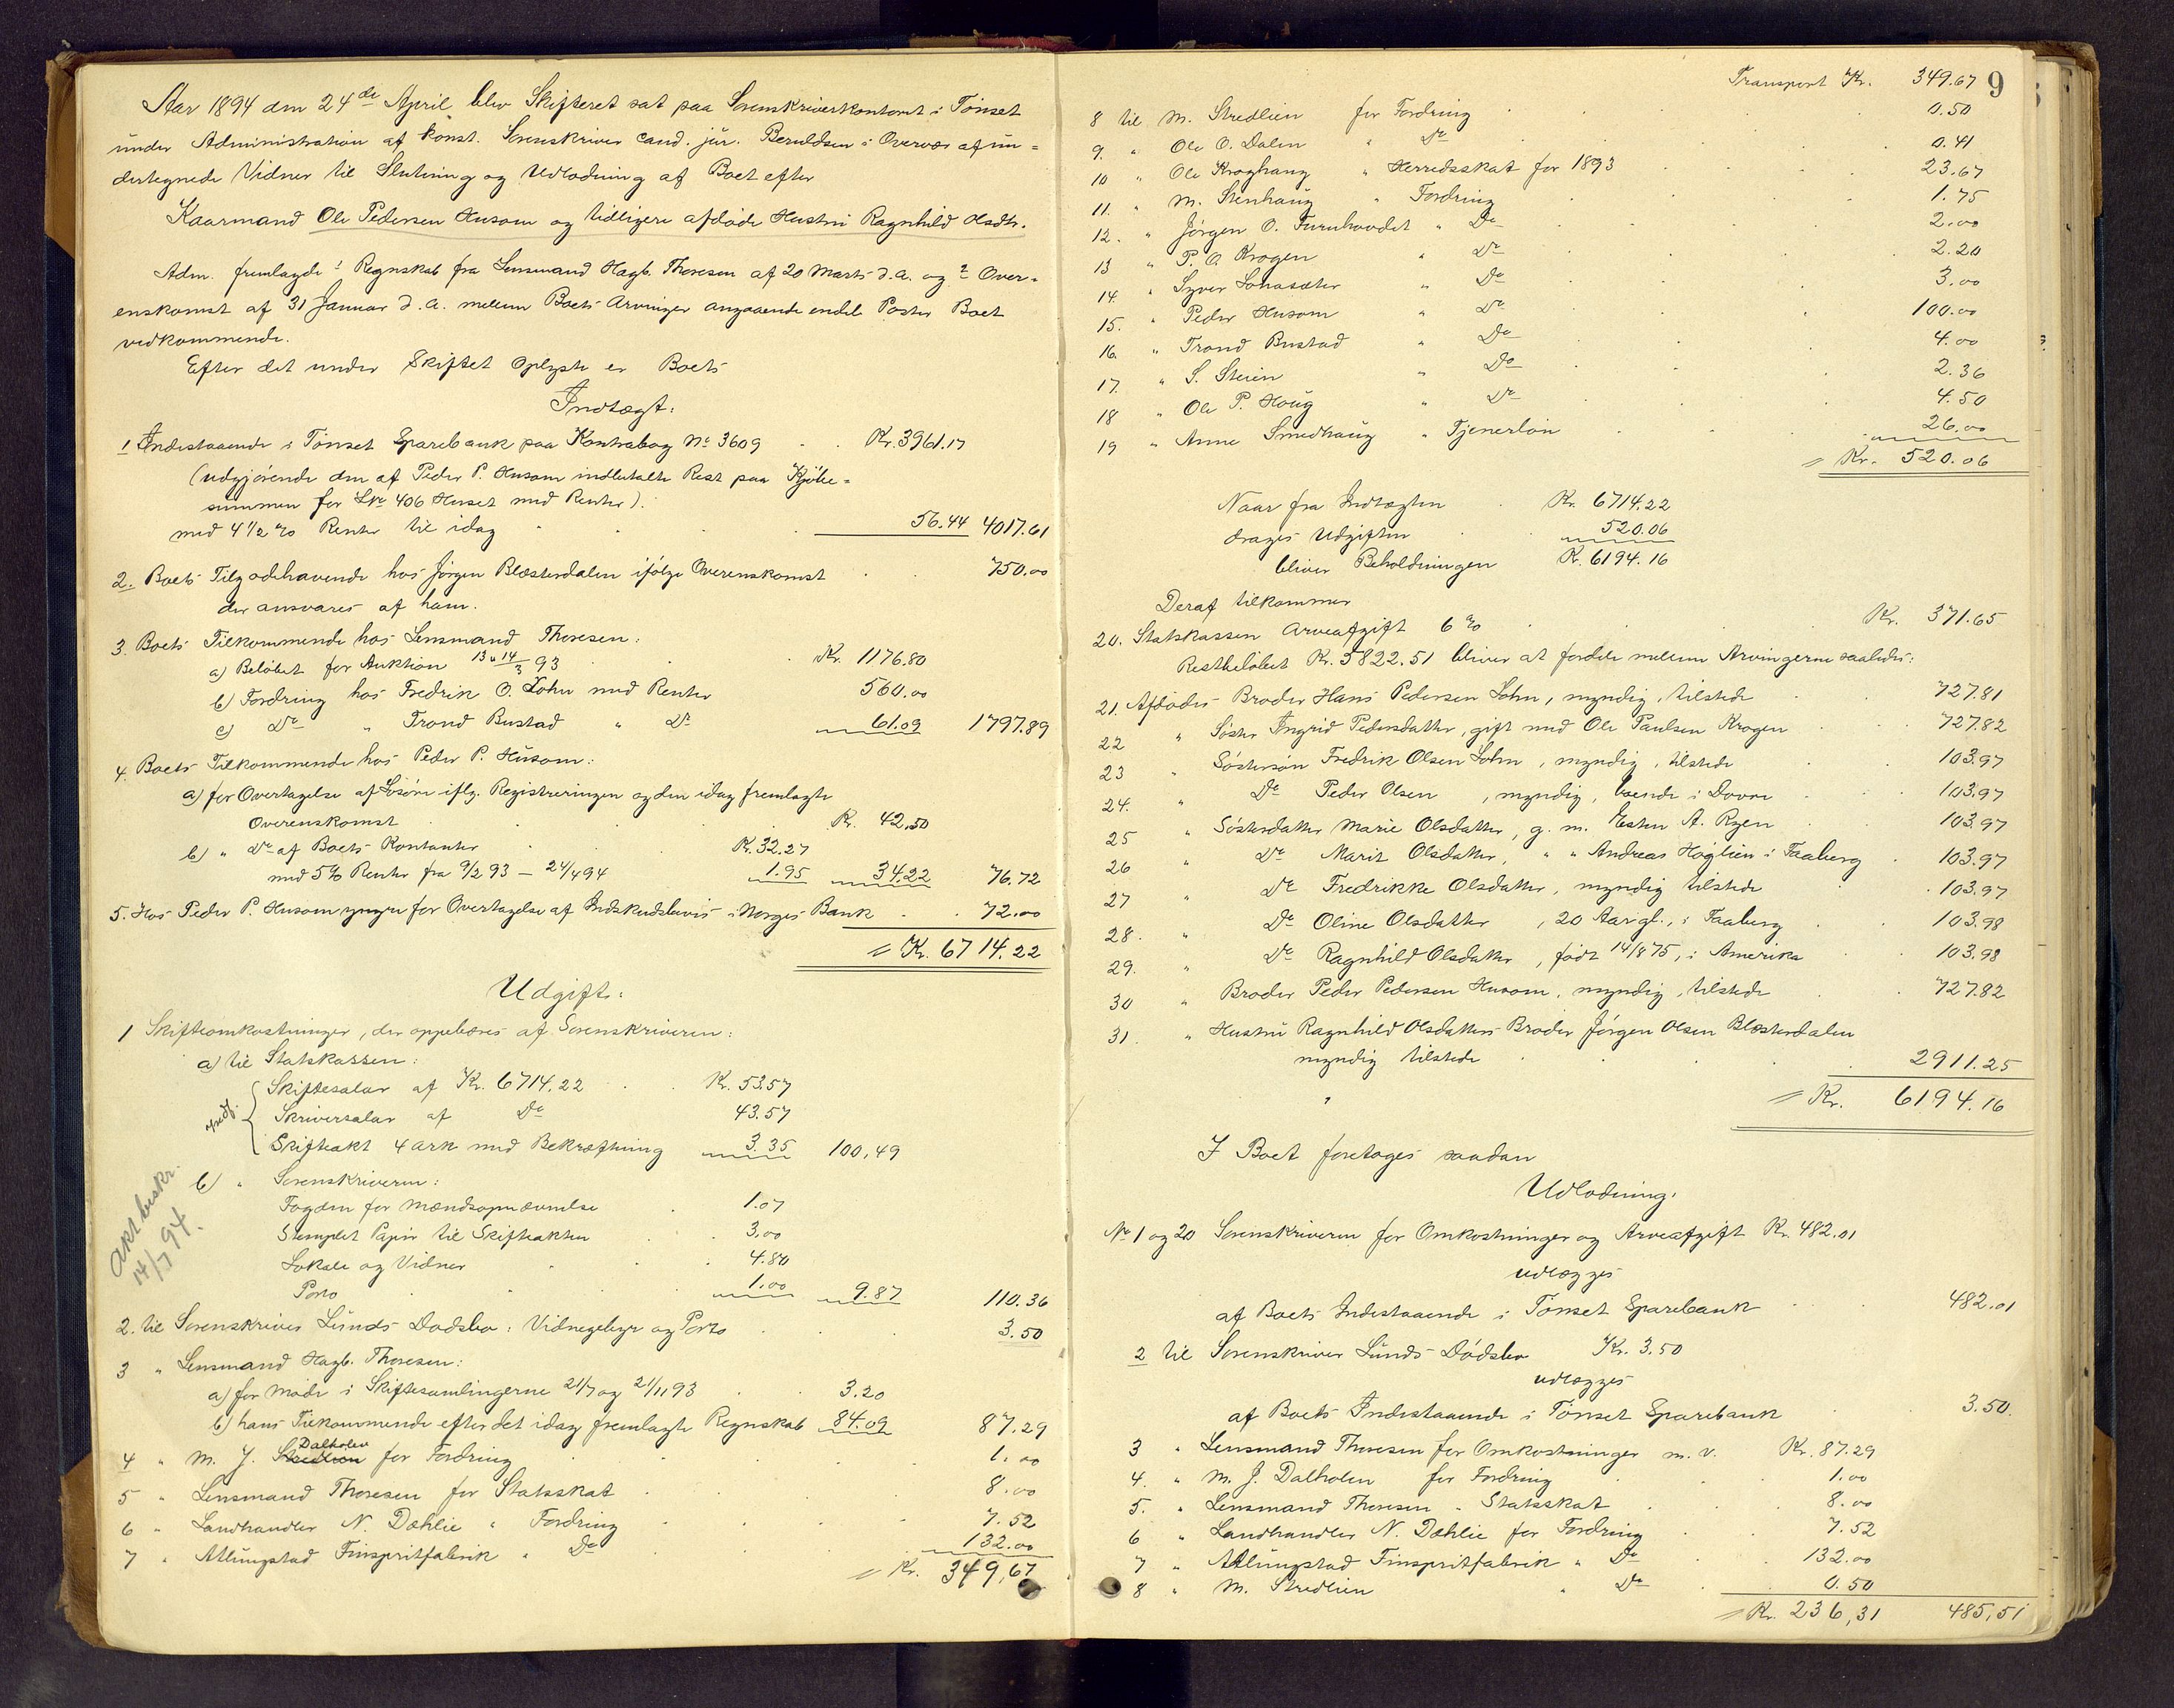 Aar 1894 den 24de April blev Skifteret sat paa Sorenskriverkontoret i Tønset
under Administration af konst. Sorenskriver cand. jur. Beruldsen i Overvær af un=
dertegnede Vidner til Slutning og Udlodning af Boet efter
Kaarmand Ole Pedersen Husom og tidligere afdøde Hustru Ragnhild Olsdtr.
Adm. fremlagde 1 Regnskab fra Lensmand Hagb. Thoresen af 20 Marts d.A. og 2 Over=
enskomst af 31 Januar d.A. mellem Boets Arvinger angaaende endel Poster Boet
vedkommende.
Efter det under Skiftet oplyste er Boets
Indtægt:
1 Indestaaende i Tønset Sparebank paa Kontrabog No 3609 Kr. 3961.17
(udgjørende den af Peder P. Husom indbetalte Rest paa Kjøbe=
summen for Lno 406 Huset med Renter).
med 4 1/2 % Renter til idag 56.44 4017.61
2. Boets Tilgodehavende hos Jørgen Blæsterdalen ifølge Overenskomst 750.00
der ansvares af ham.
3. Boets Tilkommende hos Lensmand Thoresen:
a) Beløbet for Auktion 13 & 14/3 93 Kr. 1176.80
b) Fordring hos Fredrik O. Lohn med Renter 560.00
c) Do " Trond Bustad " Do 61.09 1797.89
4. Boets Tilkommende hos Peder P. Husom:
a) for Overtagelse af Løsøre iflg. Registreringen og den idag fremlagte
Overenskomst Kr. 42.50
b) " Do af Boets Kontanter Kr. 32.27
med 5% Renter fra 9/2 93 - 24/4 94 1.95 34.22 76.72
5. Hos Peder P. Husom yngre for Overtagelse af Indskudsbevis i Norges Bank 72.00
= Kr. 6714.22
Udgift:
1 Skifteomkostninger, der oppebæres af Sorenskriveren:
a) til Statskassen:
Skiftesalær af Kr. 6714.22 Kr. 53.57
Skriversalær af Do 43.57
Skifteakt 4 Ark med Bekræftning 3.35 100.49
b) " Sorenskriveren:
Fogden for Mændsopnævnelse 1.07
Stemplet Papir til Skifteakten 3.00
Lokale og Vidner 4.80
Porto 1.00 9.87 110.36
Akt beskr.
14/7 94.
2. til Sorenskriver Lunds Dødsbo: Vidnegebyr og Porto 3.50
3 " Lensmand Hagb. Thoresen:
a) for Møde i Skiftesamlingerne 21/7 og 21/11 93 3.20
b) hans Tilkommende efter det idag fremlagte Regnskab 84.09 87.29
4 " M. J. Stredlien Dalholen for Fordring 1.00
5 " Lensmand Thoresen for Statsskat 8.00
6 " Landhandler N. Dæhlie " Fordring 7.52
7 " Atlungstad Finspritfabrik " Do 132.00
= Kr. 349,67
9
Transport Kr. 349.67
8 til M. Stredlien for Fordring 0.50
9. " Ole O. Dalen " Do 0.41
10 " Ole Kroghaug " Herredsskat for 1893 23.67
11. " M. Stenhaug " Fordring 1.75
12. " Jørgen O. Furuhovdet " Do 2.00
13 " P. O. Krogen " Do 2.20
14. " Syver Lonasæter " Do 3.00
15. " Peder Husom " Do 100.00
16. " Trond Bustad " Do 4.00
17. " S. Steien " Do 2.36
18 " Ole P. Houg " Do 4.50
19 " Anne Smedhaug " Tjenerløn 26.00
= Kr. 520.06
Naar fra Indtægten Kr. 6714.22
drages Udgiften 520.06
bliver Beholdningen Kr. 6194.16
Deraf tilkommer
20. Statskassen Arveafgift 6 % Kr. 371.65
Restbeløbet Kr. 5822.51 bliver at fordele mellem Arvingerne saaledes:
21. Afdødes Broder Hans Pedersen Lohn, myndig, tilstede 727.81
22 " Søster Ingrid Pedersdatter, gift med Ole Paulsen Krogen 727.82
23 " Søstersøn Fredrik Olsen Lohn, myndig, tilstede 103.97
24. " Do Peder Olsen, myndig, boende i Dovre 103.97
25 " Søsterdatter Marie Olsdatter, g. m. Esten A. Ryen 103.97
26 " Do Marit Olsdatter, " " Andreas Høglien i Faaberg 103.97
27 " Do Fredrikke Olsdatter, myndig tilstede 103.97
28. " Do Oline Olsdatter, 20 Aar gl., i Faaberg 103.98
29. " Do Ragnhild Olsdatter, født 14/8 75, i Amerika 103.98
30 " Broder Peder Pedersen Husom, myndig, tilstede 727.82
31. " Hustru Ragnhild Olsdatters Broder Jørgen Olsen Blæsterdalen
myndig tilstede 2911.25
= Kr. 6194.16
I Boet foretages saadan
Udlodning:
No 1 og 20 Sorenskriveren for Omkostninger og Arveafgift Kr. 482.01
udlægges
af Boets Indestaaende i Tønset Sparebank 482.01
2 til Sorenskriver Lunds Dødsbo Kr. 3.50
udlægges
af Boets Indestaaende i Tønset Sparebank 3.50.
3 " Lensmand Thoresen for Omkostninger m. v. Kr. 87.29
4. " M. J. Dalholen for Fordring 1.00
5. " Lensmand Thoresen " Statsskat 8.00
6 " Landhandler N. Dæhlie for Fordring 7.52
7 " Atlungstad Finspritfabrik " Do 132.00
8 " M. Stredlien " Do 0.50
= Kr. 236,31 485,51